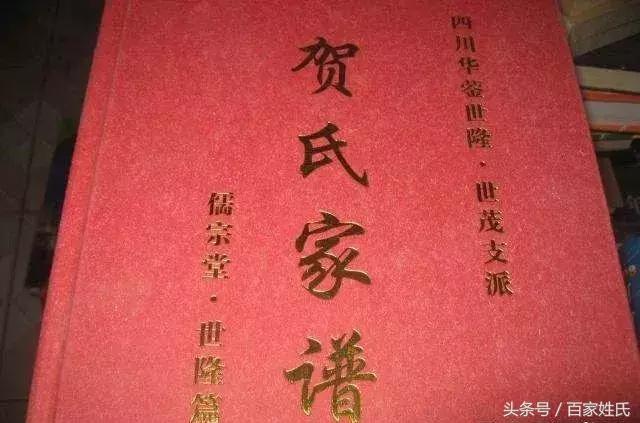 四川华蓥世隆·世茂支派
贺氏家谱
儒宗堂·世隆篇
头条号／百家姓氏